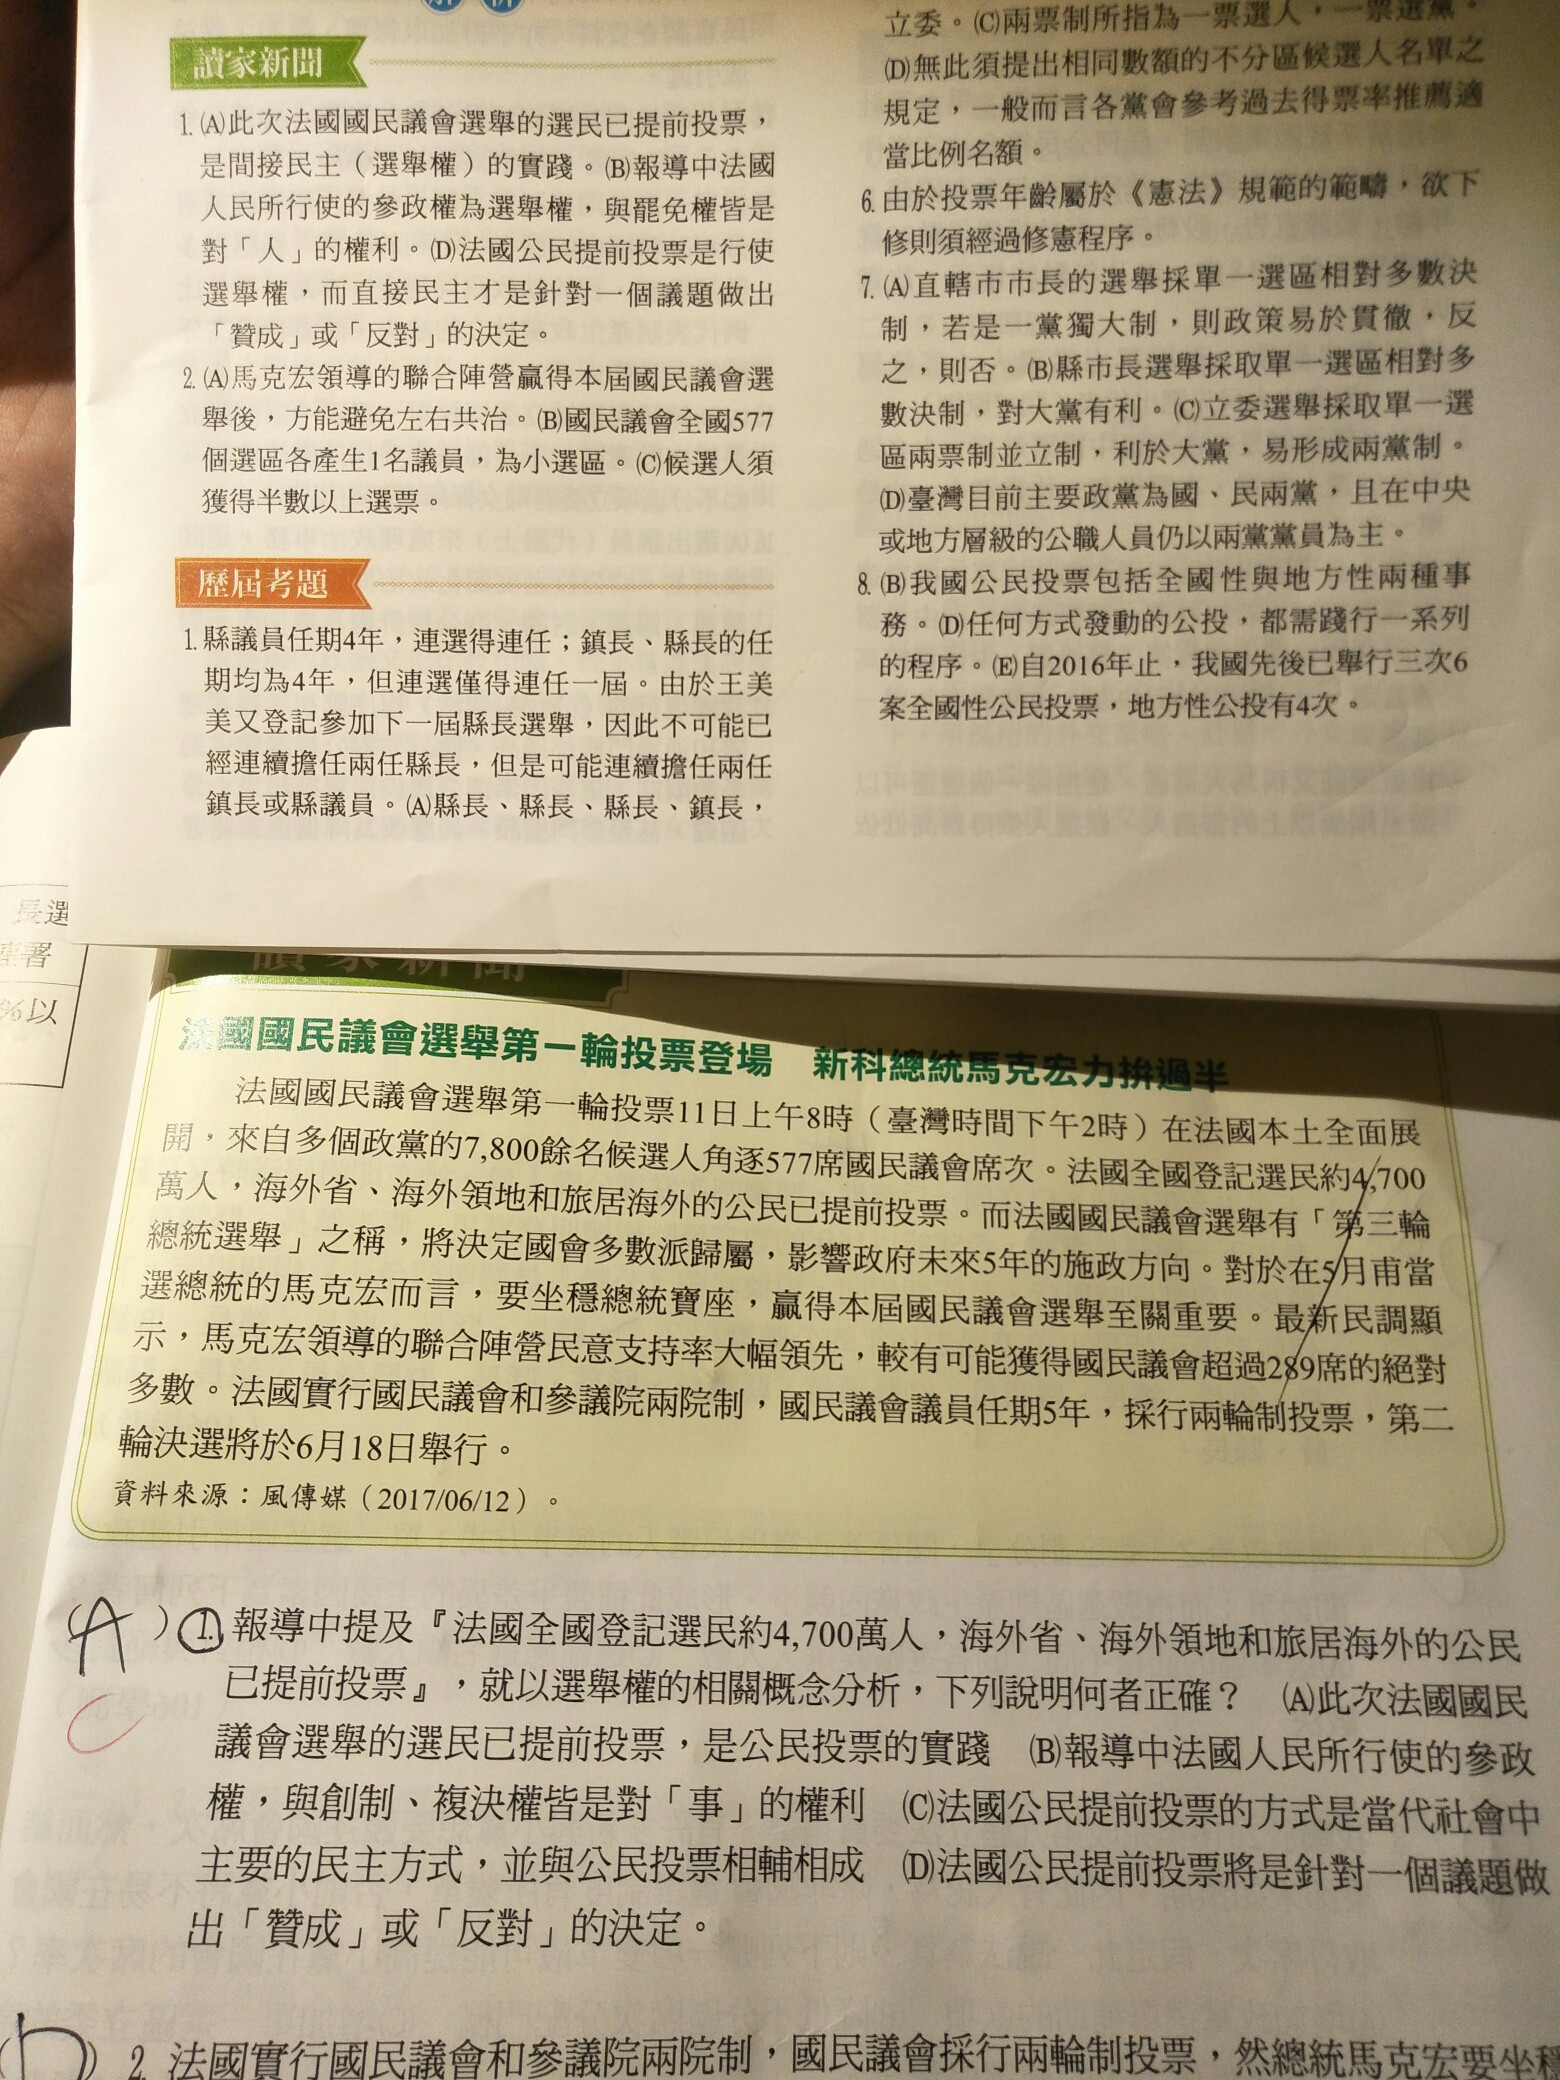 解 析
讀家新聞
1. (A)此次法國國民議會選舉的選民已提前投票，
是間接民主（選舉權）的實踐。(B)報導中法國
人民所行使的參政權為選舉權，與罷免權皆是
對「人」的權利。(D)法國公民提前投票是行使
選舉權，而直接民主才是針對一個議題做出
「贊成」或「反對」的決定。
2. (A)馬克宏領導的聯合陣營贏得本屆國民議會選
舉後，方能避免左右共治。(B)國民議會全國577
個選區各產生1名議員，為小選區。(C)候選人須
獲得半數以上選票。
歷屆考題
1. 縣議員任期4年，連選得連任；鎮長、縣長的任
期均為4年，但連選僅得連任一屆。由於王美
美又登記參加下一屆縣長選舉，因此不可能已
經連續擔任兩任縣長，但是可能連續擔任兩任
鎮長或縣議員。(A)縣長、縣長、縣長、鎮長，
立委。(C)兩票制所指為一票選人，一票選黨。
(D)無此須提出相同數額的不分區候選人名單之
規定，一般而言各黨會參考過去得票率推薦適
當比例名額。
6. 由於投票年齡屬於《憲法》規範的範疇，欲下
修則須經過修憲程序。
7. (A)直轄市市長的選舉採單一選區相對多數決
制，若是一黨獨大制，則政策易於貫徹，反
之，則否。(B)縣市長選舉採取單一選區相對多
數決制，對大黨有利。(C)立委選舉採取單一選
區兩票制並立制，利於大黨，易形成兩黨制。
(D)臺灣目前主要政黨為國、民兩黨，且在中央
或地方層級的公職人員仍以兩黨黨員為主。
8. (B)我國公民投票包括全國性與地方性兩種事
務。(D)任何方式發動的公投，都需踐行一系列
的程序。(E)自2016年止，我國先後已舉行三次6
案全國性公民投票，地方性公投有4次。
長選
署
%以
讀家新聞
法國國民議會選舉第一輪投票登場 新科總統馬克宏力拚過半
法國國民議會選舉第一輪投票11日上午8時（臺灣時間下午2時）在法國本土全面展
開，來自多個政黨的7,800餘名候選人角逐577席國民議會席次。法國全國登記選民約4,700
萬人，海外省、海外領地和旅居海外的公民已提前投票。而法國國民議會選舉有「第三輪
總統選舉」之稱，將決定國會多數派歸屬，影響政府未來5年的施政方向。對於在5月甫當
選總統的馬克宏而言，要坐穩總統寶座，贏得本屆國民議會選舉至關重要。最新民調顯
示，馬克宏領導的聯合陣營民意支持率大幅領先，較有可能獲得國民議會超過289席的絕對
多數。法國實行國民議會和參議院兩院制，國民議會議員任期5年，採行兩輪制投票，第二
輪決選將於6月18日舉行。
資料來源：風傳媒（2017/06/12）。
(A) 1. 報導中提及『法國全國登記選民約4,700萬人，海外省、海外領地和旅居海外的公民
已提前投票』，就以選舉權的相關概念分析，下列說明何者正確？ (A)此次法國國民
C
議會選舉的選民已提前投票，是公民投票的實踐 (B)報導中法國人民所行使的參政
權，與創制、複決權皆是對「事」的權利 (C)法國公民提前投票的方式是當代社會中
主要的民主方式，並與公民投票相輔相成 (D)法國公民提前投票將是針對一個議題做
出「贊成」或「反對」的決定。
(D) 2. 法國實行國民議會和參議院兩院制，國民議會採行兩輪制投票，然總統馬克宏要坐穩